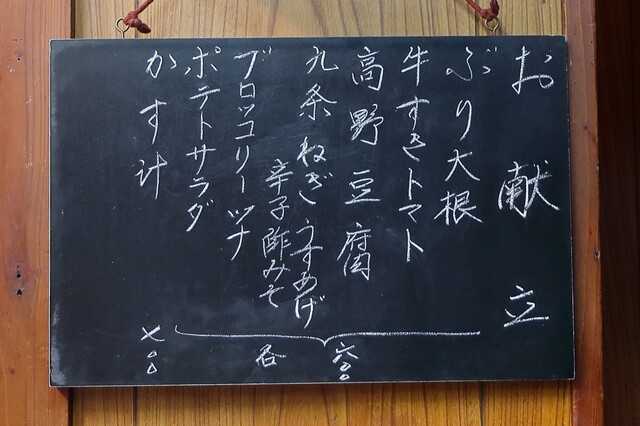 お献立
ぶり大根
牛すきトマト
高野豆腐
九条ねぎ うすあげ
辛子酢みそ
ブロッコリーツナ
ポテトサラダ
かす汁
各 六〇〇
七〇〇